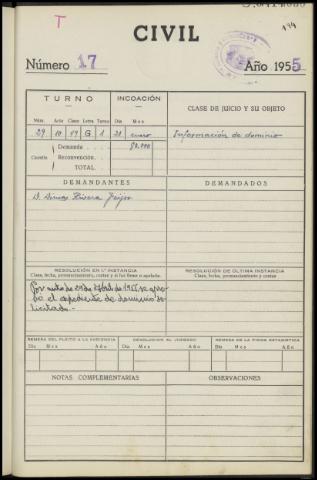 T
194
CIVIL
Número 17 Año 1955
TURNO INCOACIÓN CLASE DE JUICIO Y SU OBJETO
Núm. Acto Clase Letra Turno Día Mes
29 10 17 G 1 21 enero Información de dominio
Demanda
Cuantía Reconvención
TOTAL
DEMANDANTES DEMANDADOS
D. Rivera
RESOLUCIÓN EN 1.ª INSTANCIA RESOLUCIÓN DE ÚLTIMA INSTANCIA
Clase, fecha, pronunciamiento, costas y si fue firme o apelada. Clase, fecha, pronunciamiento, costas
Por auto de 29 de de 1955 se apro-
bó el expediente de dominio so-
licitado.-
REMESA DEL PLEITO A LA AUDIENCIA DEVOLUCION AL JUZGADO REMESA DE LA FICHA ESTADISTICA
Día Mes Año Día Mes Año Día Mes Año
NOTAS COMPLEMENTARIAS OBSERVACIONES